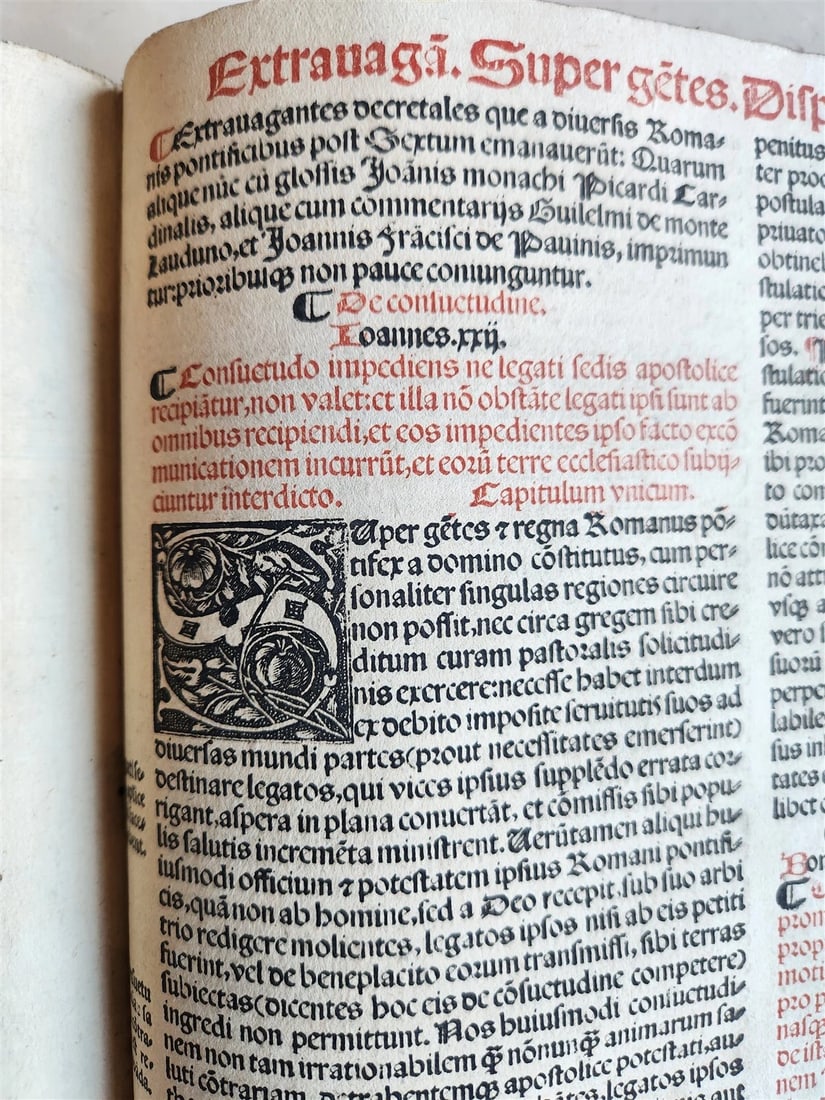 Extrauagā. Super gētes. Disp
¶ Extrauagantes decretales que a diuersis Roma⸗
nis pontificibus post Sextum emanauerūt: Quarum
alique nūc cū glossis Joānis monachi Picardi Car⸗
dinalis, alique cum commentarijs Guilelmi de monte
Lauduno, et Joannis Frācisci de Pauinis, imprimun
tur: prioribusqꝫ non pauce coniunguntur.
¶ De consuetudine.
Ioannes.xxij.
¶ Consuetudo impediens ne legati sedis apostolice
recipiātur, non valet: et illa nō obstāte legati ipsi sunt ab
omnibus recipiendi, et eos impedientes ipso facto excō
municationem incurrūt, et eorū terre ecclesiastico subij⸗
ciuntur interdicto. Capitulum vnicum.
SUper gētes ⁊ regna Romanus pō⸗
tifex a domino cōstitutus, cum per⸗
sonaliter singulas regiones circuire
non possit, nec circa gregem sibi cre⸗
ditum curam pastoralis solicitudi⸗
nis exercere: necesse habet interdum
ex debito imposite seruitutis suos ad
diuersas mundi partes (prout necessitates emerserint)
destinare legatos, qui vices ipsius supplēdo errata cor⸗
rigant, aspera in plana conuertāt, et cōmissis sibi popu⸗
lis salutis incremēta ministrent. Uerūtamen aliqui hu⸗
iusmodi officium ⁊ potestatem ipsius Romani pontifi⸗
cis, quā non ab homine, sed a Deo recepit, sub suo arbi
trio redigere molientes, legatos ipsos nisi ab eis petiti
fuerint, vel de beneplacito eorum transmissi, sibi terras
subiectas (dicentes hoc eis de cōsuetudine competere)
ingredi non permittunt. Nos huiusmodi consuetudi⸗
nem non tam irrationabilem qꝫ nōnunqꝫ animarum sa⸗
luti cōtrariam, detrahentemqꝫ apostolice potestati, au⸗
legatos ipsos
penitus
ter proc
postula
priuato
obtinet
stulatio
per trie
sos. ¶
stulati
fuerint
Roma
ibi pro
to con
dūtaxa
lice cōn
nō att
vsqꝫ a
vero s
suorū
perpe
labile
sus in
tates
libet c
Bon
¶
prom
prop
moti
pro p
nasqꝫ
de ist
nem